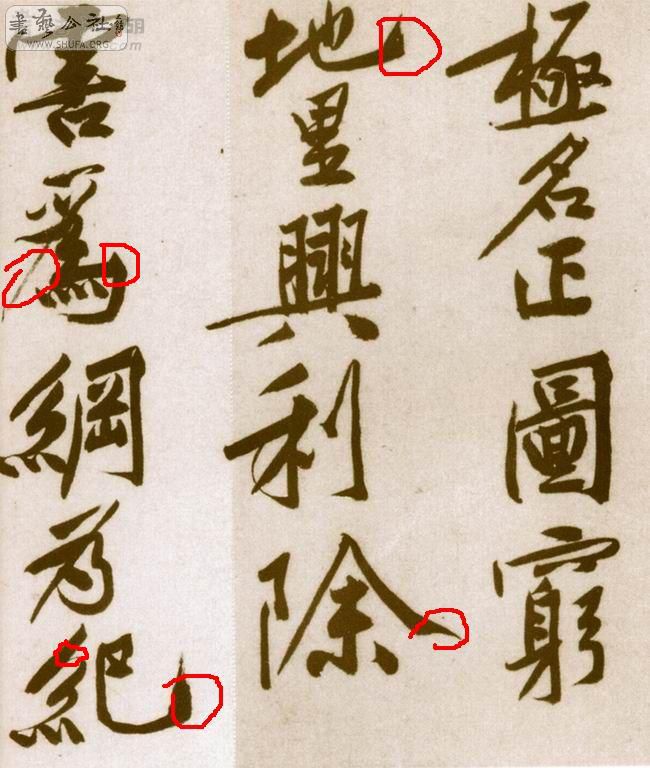 極名正圖窮
地里興利除
害爲綱為紀
書藝公社
WWW.SHUFA.ORG